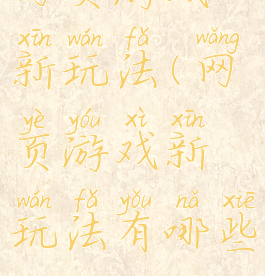 xīn wán fǎ wǎng
新玩法(网
yè yóu xì xīn
页游戏新
wán fǎ yǒu nǎ xiē
玩法有哪些